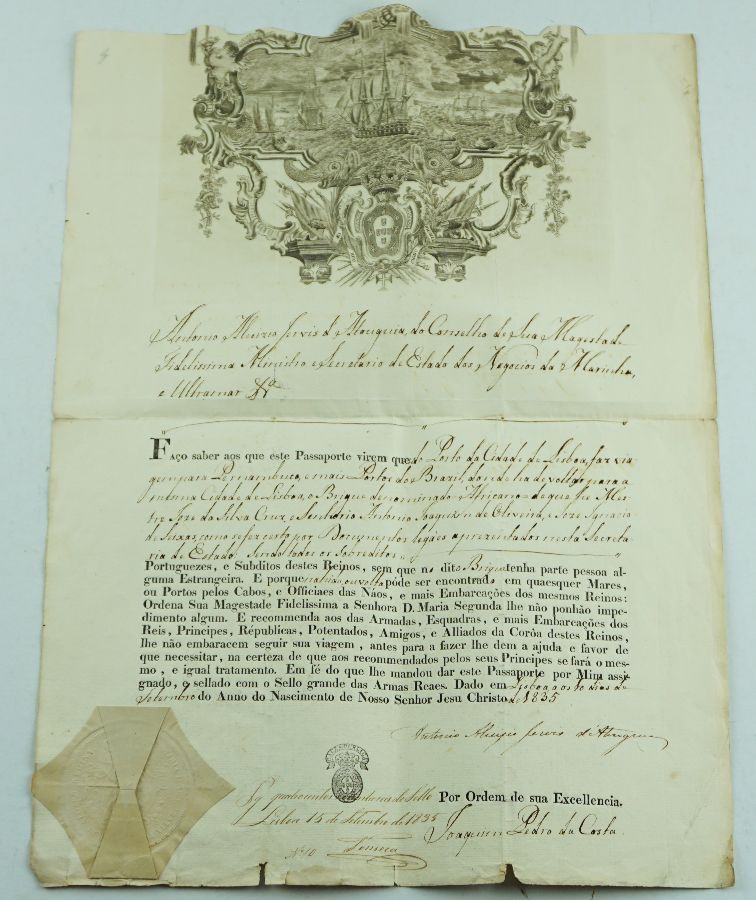 Antonio Aluizio Jervis d'Atouguia, do Conselho de Sua Magestade
Fidelissima Ministro e Secretario de Estado dos Negocios da Marinha,
e Ultramar &ª
Faço saber aos que este Passaporte virem que do Porto da Cidade de Lisboa, faz via
gem para Pernambuco, e mais Portos do Brazil, donde ha de voltar para a
mesma Cidade de Lisboa, o Brigue denominado = Africano = de que he Mes-
tre Joze da Silva Cruz, e Senhorio Antonio Joaquim de Oliveira, e Joze Ignacio
de Seixas, como se fez certo por Documentos legaes aprezentados nesta Secreta
ria de Estado sendo todos os sobreditos
Portuguezes, e Subditos destes Reinos, sem que no dito Brigue tenha parte pessoa al-
guma Estrangeira. E porque na hida, ou volta póde ser encontrado em quaesquer Mares,
ou Portos pelos Cabos, e Officiaes das Náos, e mais Embarcações dos mesmos Reinos:
Ordena Sua Magestade Fidelissima a Senhora D. Maria Segunda lhe não ponhão impe-
dimento algum. E recommenda aos das Armadas, Esquadras, e mais Embarcações dos
Reis, Principes, Républicas, Potentados, Amigos, e Alliados da Corôa destes Reinos,
lhe não embaracem seguir sua viagem, antes para a fazer lhe dem a ajuda e favor de
que necessitar, na certeza de que aos recommendados pelos seus Principes se fará o mes-
mo, e igual tratamento. Em fé do que lhe mandou dar este Passaporte por Mim assi-
gnado, e sellado com o Sello grande das Armas Reaes. Dado em Lisboa aos 10 dias de
Setembro do Anno do Nascimento de Nosso Senhor Jesu Christo de 1835
Antonio Aluizio Jervis d'Atouguia
de Sello
Por Ordem de sua Excellencia.
Lisboa 15 de Setembro de 1835
Joaquim Pedro da Costa
Nº 10 Fonseca